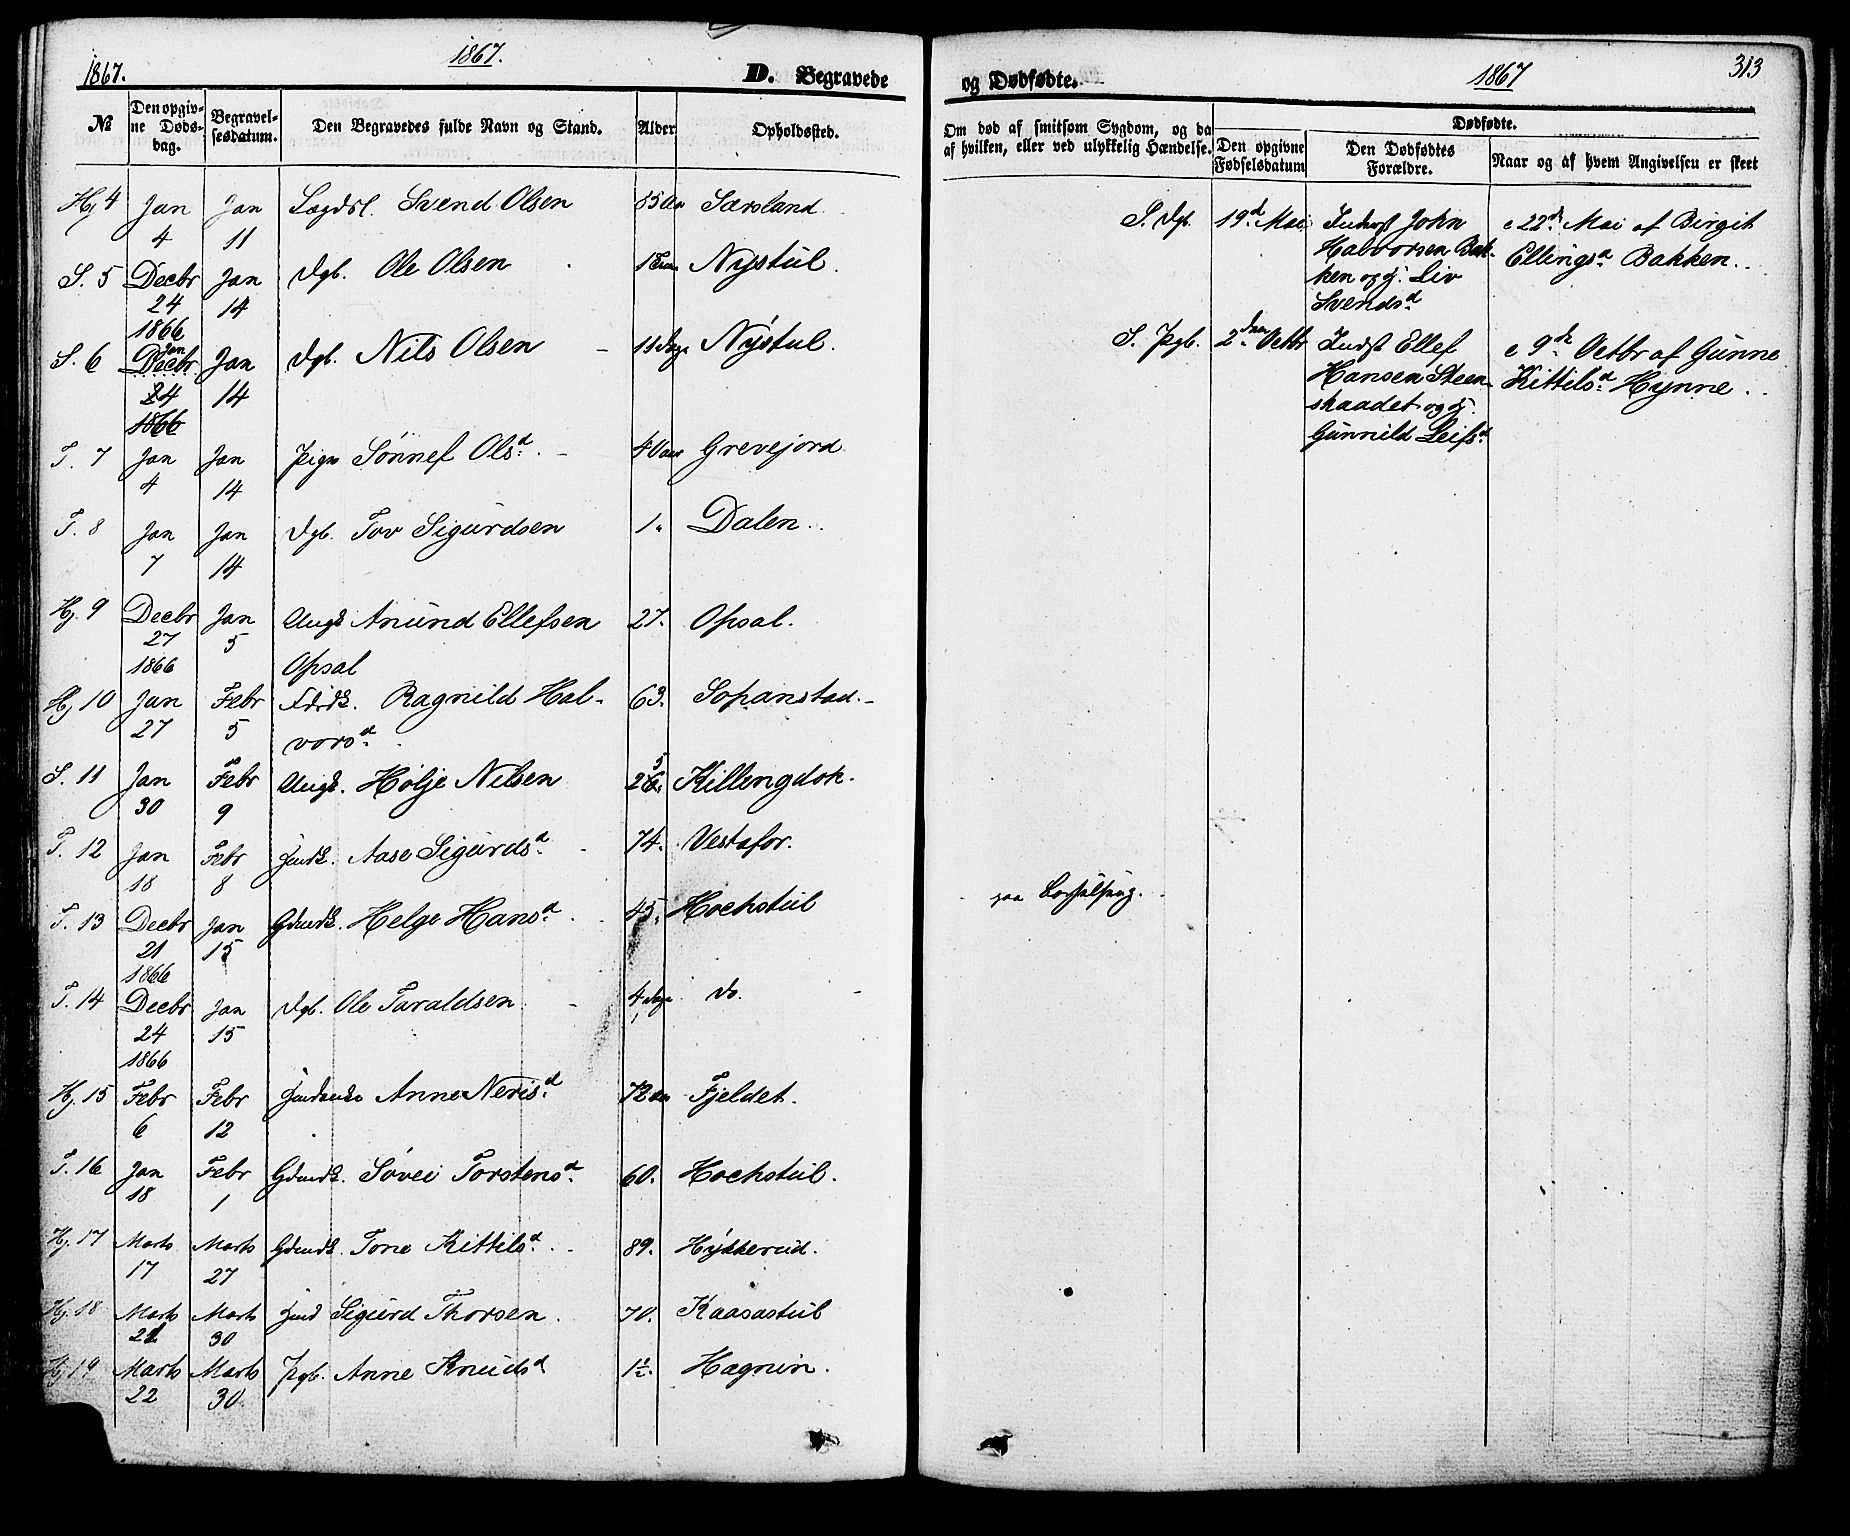 1867.
1867.
D. Begravede
№
Den opgiv-
ne Døds-
dag.
Begravel-
sesdatum.
Den Begravedes fulde Navn og Stand.
Alder
Opholdssted.
Hj 4 Jan 4 Jan 11 Lægdsl. Svend Olsen Særsland
S. 5 Decbr 24 1866 Jan 14 Dgb. Ole Olsen Nystul.
S. 6 Decbr Jan 24 1866 Jan 14 Dgb. Nils Olsen 11 Dage Nystul.
T. 7 Jan 4 Jan 14 Pige Sønnef Olsd. 40 aar Grevejord
T. 8 Jan 7 Jan 14 Dgb. Tov Sigurdsen 1. Dalen.
Hj. 9 Decbr 27 1866 Jan 5 Ungk Anund Ellefsen
Opsal 27. Opsal.
Hj 10 Jan 27 Febr 5 Ragnild Hal-
vorsd. 63. Sopanstad.
S. 11 Jan 30 Febr 9 Ungk. Hølje Nilsen Killingdok.
T. 12 Jan 18 Febr 8 Indk. Aase Sigurdsd. 74. Vestafor.
T. 13 Decbr 21 1866 Jan 15 Gdmdk. Helge Hansd. 45. Hochstul
T. 14 Decbr 24 1866 Jan 15 Dgb. Ole Taraldsen 4 Dage do.
Hj. 15 Febr 6 Febr 12 Anne Nerisd. 72 aar Fjeldet.
T. 16 Jan 18 Febr 1 Gdmdk. Søvei Torstensd. 60. Hochstul.
Hj. 17 Marts 17 Marts 27 Gdmdk. Tone Kittilsd. 89. Hykkerud.
Hj. 18 Marts 21 Marts 30 Ind Sigurd Thorsen 70. Kaasastul
Hj 19 Marts 22 Marts 30. Pgb. Anne Knudsd 1½. Hagnin.
og Dødfødte.
1867
313
Om død af smitsom Sygdom, og da
af hvilken, eller ved ulykkelig Hændelse.
Dødfødte.
Den opgivne
Fødselsdatum
Den Dødfødtes
Forældre.
Naar og af hvem Angivelsen er skeet
S. Dgb. 19d Mai
Inderst John
Halvorsen Bak-
ken og Hj. Liv
Svendsd
22d Mai af Birgit
Ellingsd Bakken.
S. Pgb. 2den Octbr
Indst Ellef
Hansen Steen-
skaadet og Hj.
Gunnild Leifsd
9de Octbr af Gunne
Kittilsd Hynne.
paa Barselseng.